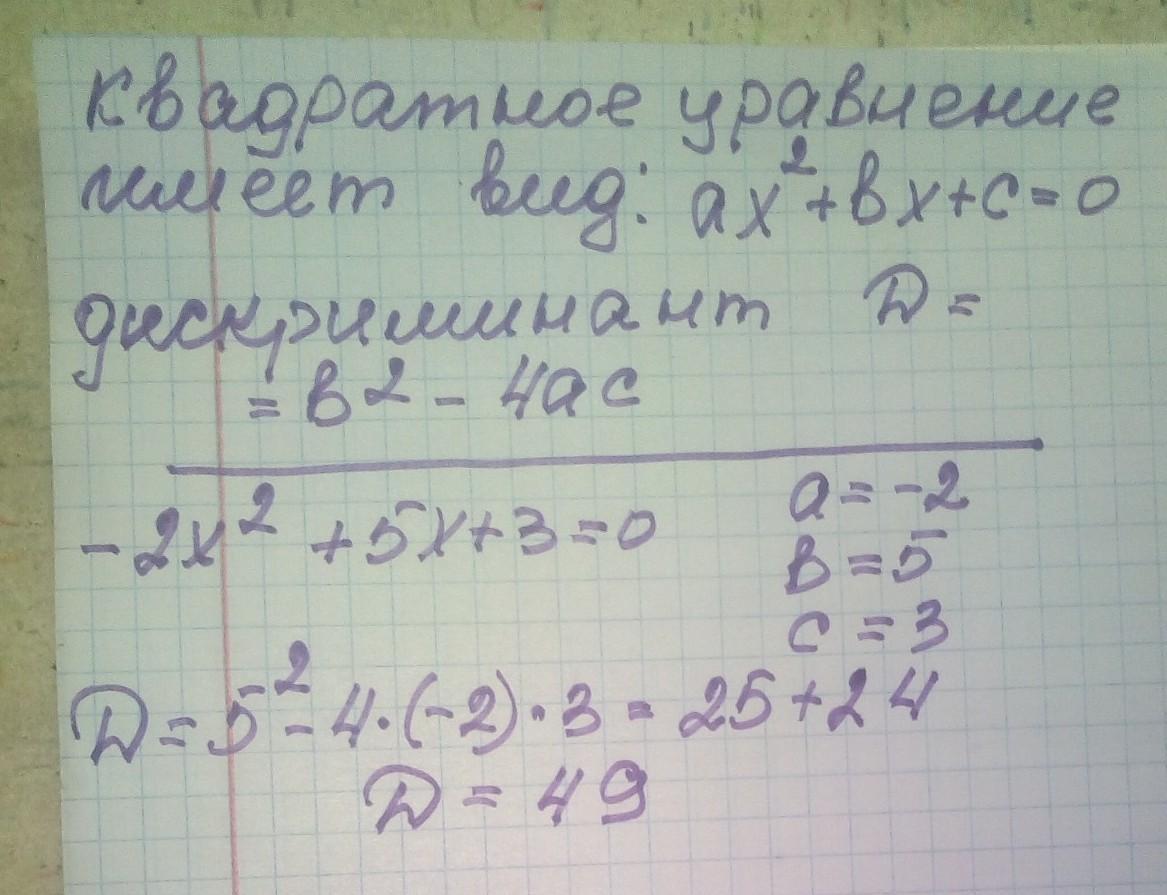 квадратное уравнение
имеет вид: ax²+bx+c=0
дискриминант D=
= b² - 4ac
-2x² +5x+3=0
a=-2
b=5
c=3
D=5²-4·(-2)·3=25+24
D=49